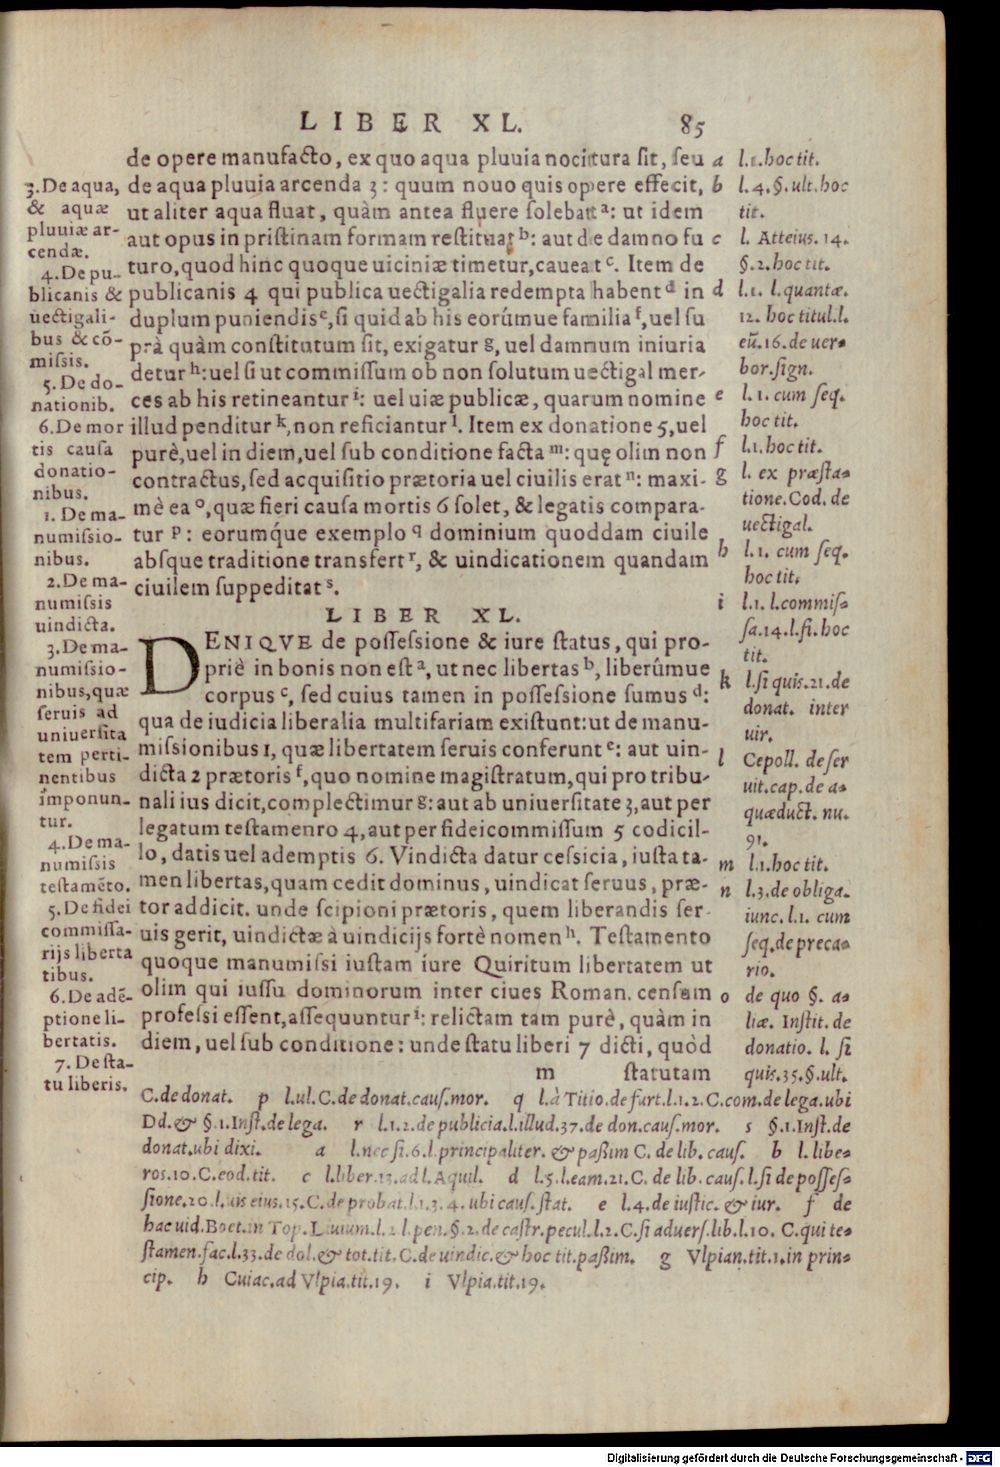 LIBER XL. 85
de opere manufacto, ex quo aqua pluuia nocitura sit, seu
de aqua pluuia arcenda 3: quum nouo quis opere effecit,
ut aliter aqua fluat, quàm antea fluere solebat a: ut idem
aut opus in pristinam formam restituat b: aut de damno fu
turo, quod hinc quoque uiciniæ timetur, caueat c. Item de
publicanis 4 qui publica uectigalia redempta habent d in
duplum puniendis e, si quid ab his eorúmue familia f, uel su
prà quàm constitutum sit, exigatur g, uel damnum iniuria
detur h: uel si ut commissum ob non solutum uectigal mer-
ces ab his retineantur i: uel uiæ publicæ, quarum nomine
illud penditur k, non reficiantur l. Item ex donatione 5, uel
purè, uel in diem, uel sub conditione facta m: quę olim non
contractus, sed acquisitio prætoria uel ciuilis erat n: maxi-
mè ea o, quæ fieri causa mortis 6 solet, & legatis compara-
tur p: eorumq́ue exemplo q dominium quoddam ciuile
absque traditione transfert r, & uindicationem quandam
ciuilem suppeditat s.
LIBER XL.
DENIQVE de possessione & iure status, qui pro-
priè in bonis non est a, ut nec libertas b, liberûmue
corpus c, sed cuius tamen in possessione sumus d:
qua de iudicia liberalia multifariam existunt: ut de manu-
missionibus 1, quæ libertatem seruis conferunt e: aut uin-
dicta 2 prætoris f, quo nomine magistratum, qui pro tribu-
nali ius dicit, complectimur g: aut ab uniuersitate 3, aut per
legatum testamenro 4, aut per fideicommissum 5 codicil-
lo, datis uel ademptis 6. Vindicta datur cessicia, iusta ta-
men libertas, quam cedit dominus, uindicat seruus, præ-
tor addicit. unde scipioni prætoris, quem liberandis ser-
uis gerit, uindictæ à uindicijs fortè nomen h. Testamento
quoque manumissi iustam iure Quiritum libertatem ut
olim qui iussu dominorum inter ciues Roman. censum
professi essent, assequuntur i: relictam tam purè, quàm in
diem, uel sub conditione: unde statu liberi 7 dicti, quòd
m statutam
3. De aqua,
& aquæ
pluuiæ ar-
cendæ.
4. De pu-
blicanis &
uectigali-
bus & cō-
missis.
5. De do-
nationib.
6. De mor
tis causa
donatio-
nibus.
1. De ma-
numissio-
nibus.
2. De ma-
numissis
uindicta.
3. De ma-
numissio-
nibus, quæ
seruis ad
uniuersita
tem perti-
nentibus
imponun-
tur.
4. De ma-
numissis
testamēto.
5. De fidei
commissa-
rijs liberta
tibus.
6. De adē-
ptione li-
bertatis.
7. De sta-
tu liberis.
a l.1. hoc tit.
b l.4. §. ult. hoc
tit.
c l. Atteius. 14.
§. 2. hoc tit.
d l.1. l. quantæ.
12. hoc titul. l.
eū. 16. de uer-
bor. sign.
e l.1. cum seq.
hoc tit.
f l.1. hoc tit.
g l. ex præsta-
tione. Cod. de
uectigal.
h l.1. cum seq.
hoc tit.
i l.1. l. commis-
sa. 14. l. fi. hoc
tit.
k l. si quis. 21. de
donat. inter
uir.
l Cepoll. de ser
uit. cap. de a-
quæduct. nu.
91.
m l.1. hoc tit.
n l.3. de obliga.
iunc. l.1. cum
seq. de preca-
rio.
o de quo §. a-
liæ. Instit. de
donatio. l. si
quis. 35. §. ult.
C. de donat. p l. ul. C. de donat. caus. mor. q l. à Titio. de furt. l.1.2. C. com. de lega. ubi
Dd. & §. 1. Inst. de lega. r l.1.2. de publicia. l. illud. 37. de don. caus. mor. s §. 1. Inst. de
donat. ubi dixi. a l. nec si. 6. l. principaliter. & paßim C. de lib. caus. b l. libe-
ros. 10. C. eod. tit. c l. liber. 13. ad l. Aquil. d l.5. l. eam. 21. C. de lib. caus. l. si de posses-
sione. 20. l. uis eius. 15. C. de probat. l.1.3.4. ubi caus. stat. e l.4. de iustic. & iur. f de
hac uid. Boet. in Top. Liuium. l.2 l. pen. §. 2. de castr. pecul. l.2. C. si aduers. lib. l.10. C. qui te-
stamen. fac. l.33. de dol. & tot. tit. C. de uindic. & hoc tit. paßim. g Vlpian. tit. 1. in prin-
cip. h Cuiac. ad Vlpia. tit. 19. i Vlpia. tit. 19.
Digitalisierung gefördert durch die Deutsche Forschungsgemeinschaft - DFG